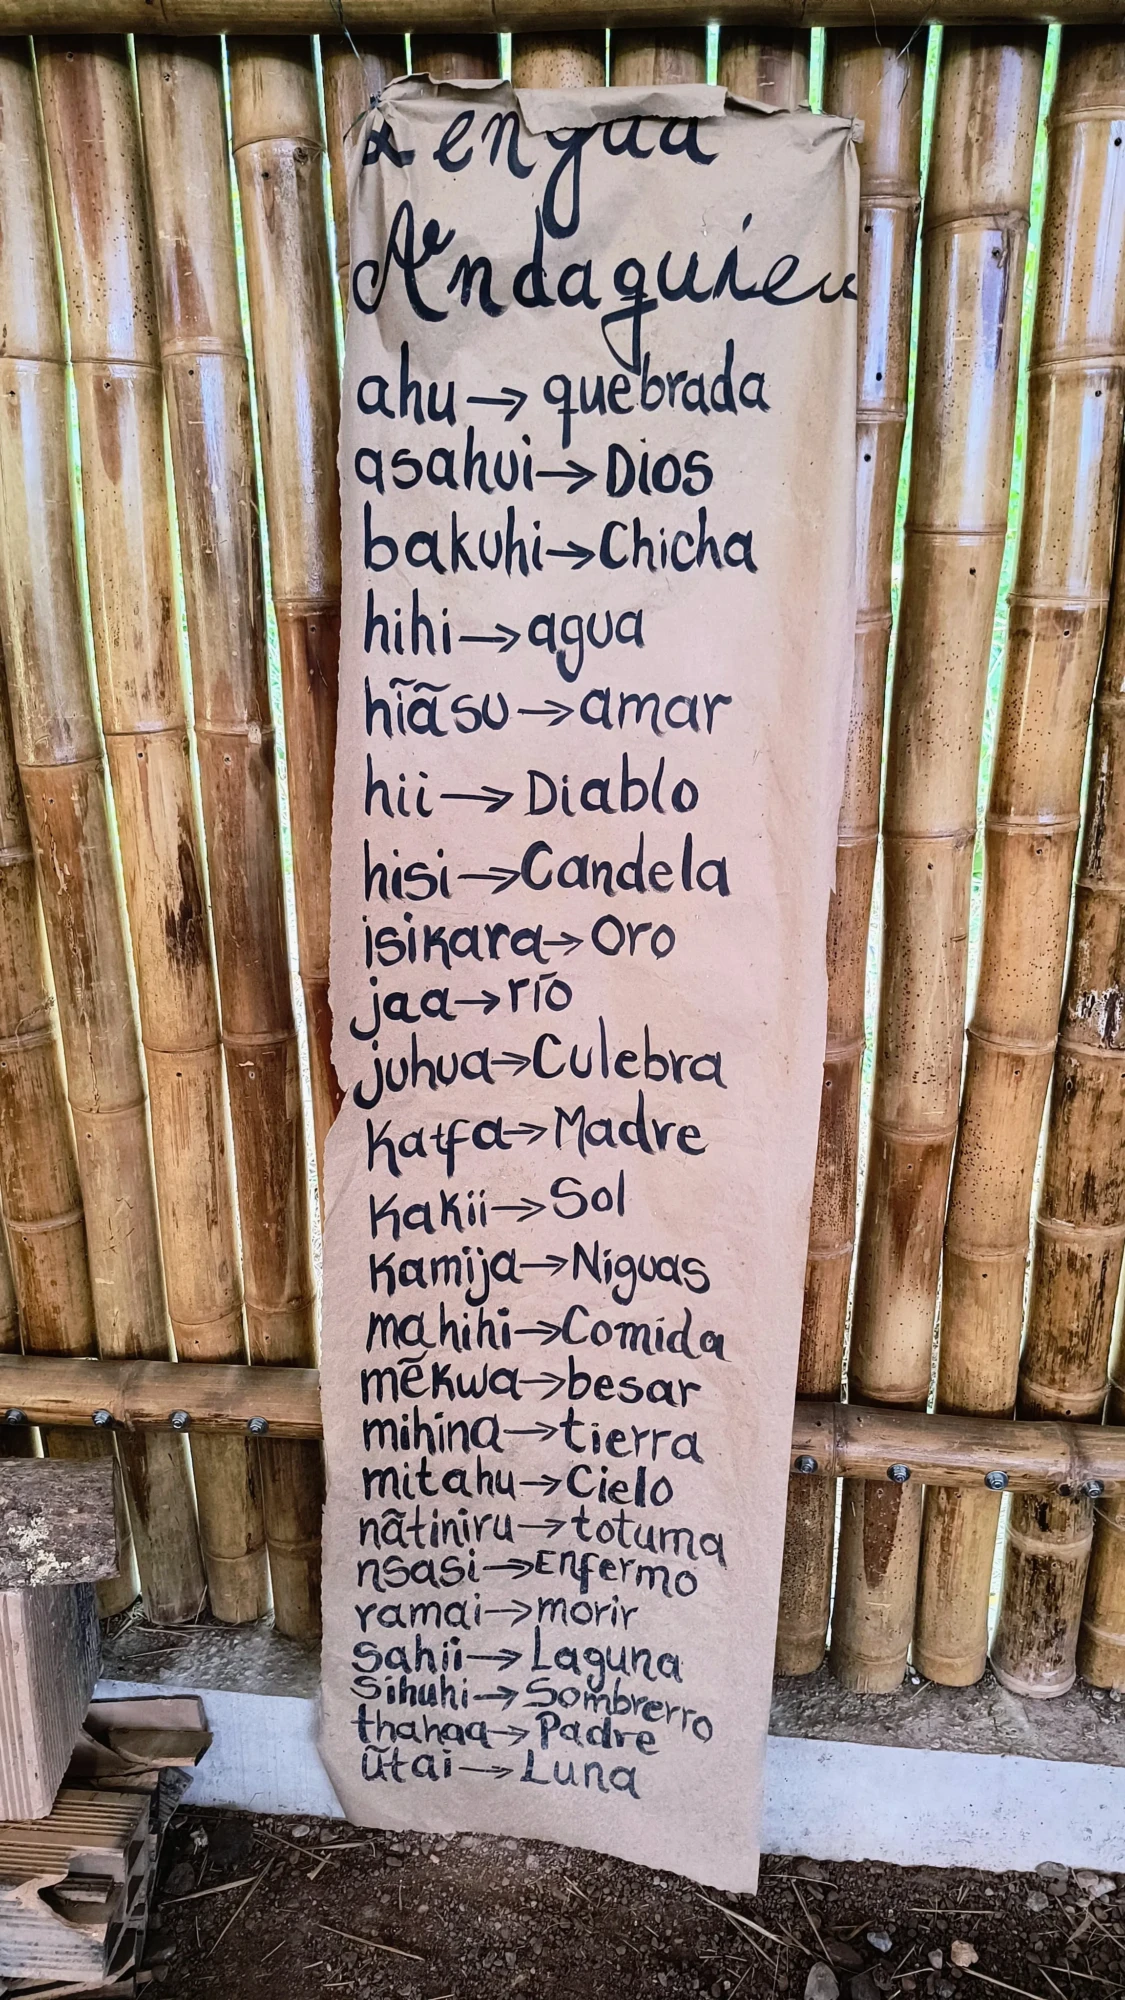 Lengua
Andaquieu
ahu → quebrada
asahui → Dios
bakuhi → Chicha
hihi → agua
hĩãsu → amar
hii → Diablo
hisi → Candela
isikara → Oro
jaa → río
juhua → Culebra
Katfa → Madre
Kakii → Sol
Kamija → Niguas
mahihi → Comida
mẽkwa → besar
mihina → tierra
mitahu → Cielo
nãtiniru → totuma
nsasi → Enfermo
ramai → morir
sahii → Laguna
Sihuhi → Sombrerro
thahaa → Padre
ũtai → Luna